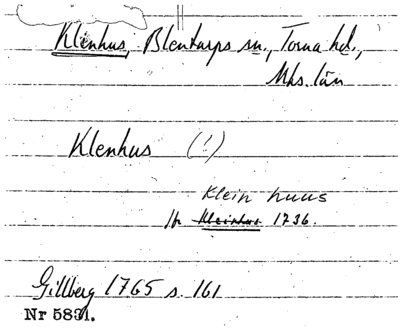 Klenhus, Blentarps sn., Torna hd.,
Mhs. län
Klenhus (!)
Klein huus
jfr Kleinhus 1736.
Gillberg 1765 s. 161
Nr 5831.